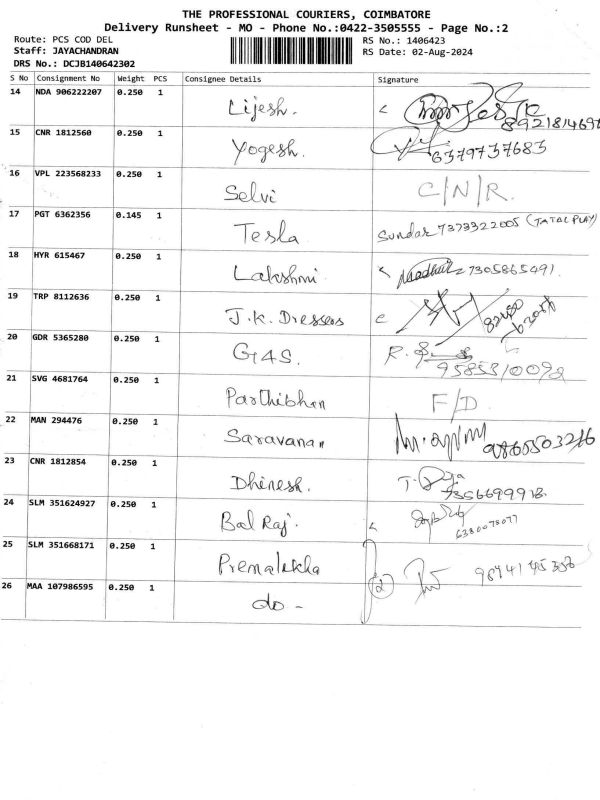 THE PROFESSIONAL COURIERS, COIMBATORE
Delivery Runsheet - MO - Phone No.:0422-3505555 - Page No.:2
Route: PCS COD DEL RS No.: 1406423
Staff: JAYACHANDRAN RS Date: 02-Aug-2024
DRS No.: DCJB140642302
S No Consignment No Weight PCS Consignee Details Signature
14 NDA 906222207 0.250 1 Lijesh.
15 CNR 1812560 0.250 1 Yogesh. 6379737683
16 VPL 223568233 0.250 1 Selvi C/N/R.
17 PGT 6362356 0.145 1 Tesla Sundar 7373322005 (TATAPLAY)
18 HYR 615467 0.250 1 Lakshmi 7305865491.
19 TRP 8112636 0.250 1 J.K. Dresses
20 GDR 5365280 0.250 1 G4S. R.
21 SVG 4681764 0.250 1 Parthibhan F/D.
22 MAN 294476 0.250 1 Saravanan
23 CNR 1812854 0.250 1 Dhinesh. 7356699918.
24 SLM 351624927 0.250 1 Balraj. 6380075077
25 SLM 351668171 0.250 1 Premalekha
26 MAA 107986595 0.250 1 do - 2